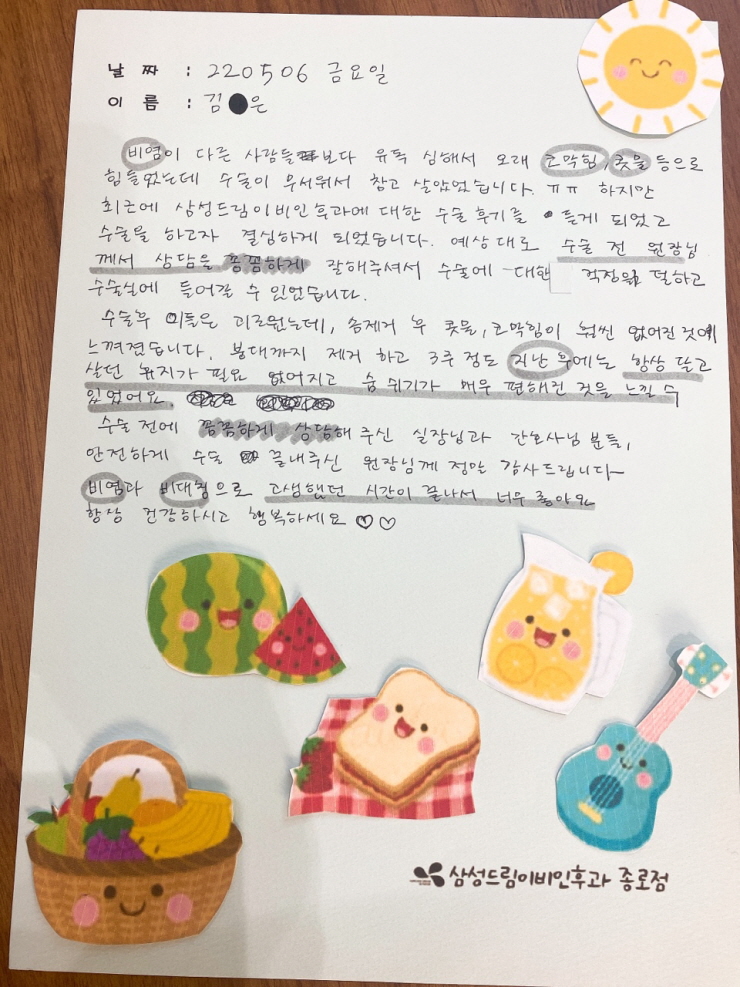 날 짜 : 220506 금요일
이 름 : 김 은
비염이 다른 사람들보다 유독 심해서 오래 코막힘, 콧물 등으로
힘들었는데 수술이 무서워서 참고 살았었습니다. ㅠㅠ 하지만
최근에 삼성드림이비인후과에 대한 수술 후기를 듣게 되었고
수술을 하고자 결심하게 되었습니다. 예상대로 수술 전 원장님
께서 상담을 꼼꼼하게 잘해주셔서 수술에 대한 걱정을 덜하고
수술실에 들어갈 수 있었습니다.
수술후 이틀은 괴로웠는데, 솜제거 후 콧물, 코막힘이 훨씬 없어진 것이
느껴졌습니다. 붕대까지 제거 하고 3주 정도 지난 후에는 항상 달고
살던 휴지가 필요 없어지고 숨 쉬기가 매우 편해진 것을 느낄 수
있었어요.
수술 전에 꼼꼼하게 상담해 주신 실장님과 간호사님 분들,
안전하게 수술 끝내주신 원장님께 정말 감사드립니다
비염과 비대칭으로 고생했던 시간이 끝나서 너무 좋아요
항상 건강하시고 행복하세요 ♡♡
삼성드림이비인후과 종로점